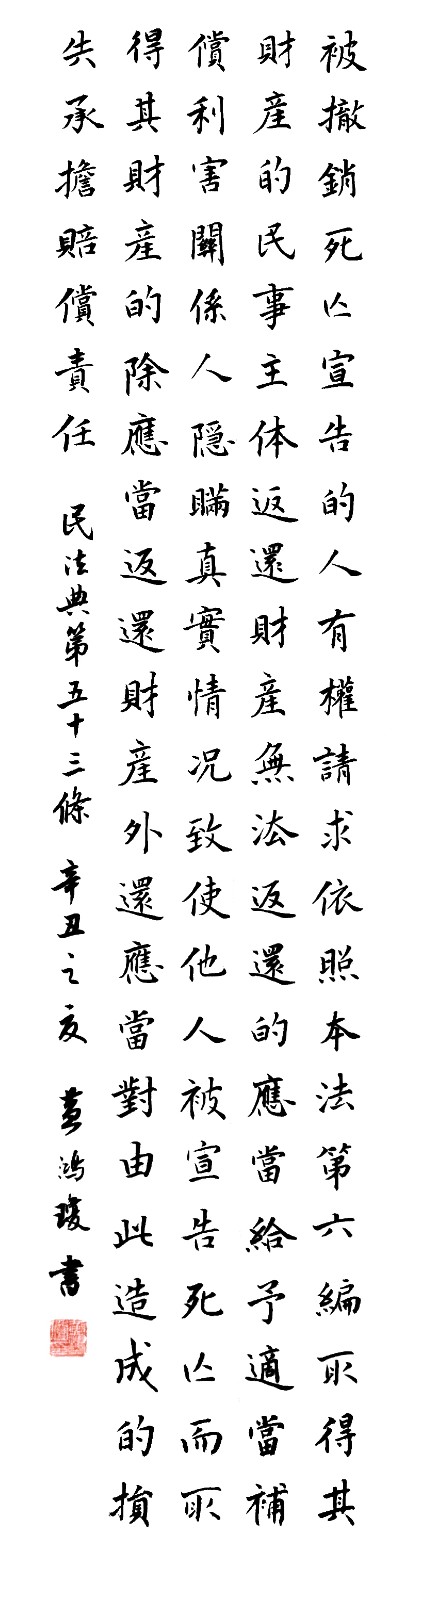 被撤銷死亡宣告的人有權請求依照本法第六編取得其
財產的民事主体返還財產無法返還的應當給予適當補
償利害關係人隐瞞真實情况致使他人被宣告死亡而取
得其財產的除應當返還財產外還應當對由此造成的損
失承擔賠償責任 民法典第五十三條 辛丑之夏 黄鴻瓊書